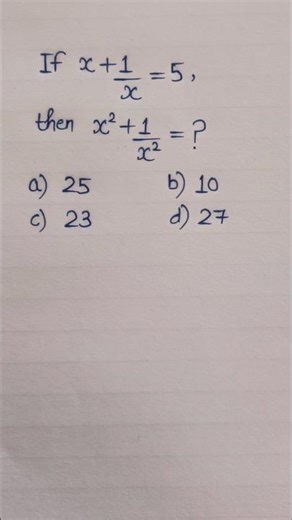 If x + 1/x = 5,
then x² + 1/x² = ?
a) 25 b) 10
c) 23 d) 27